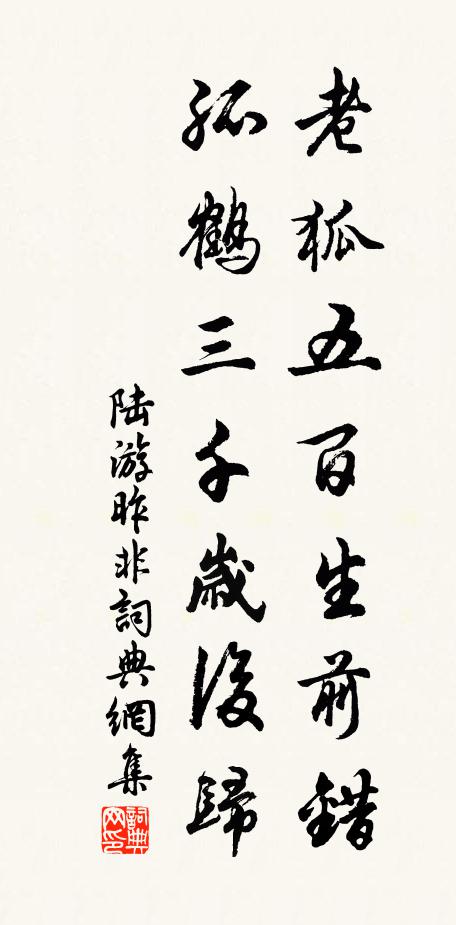 老狐五百生前錯
孤鶴三千歲後歸
陆游昨非詞典網集
詞典网印